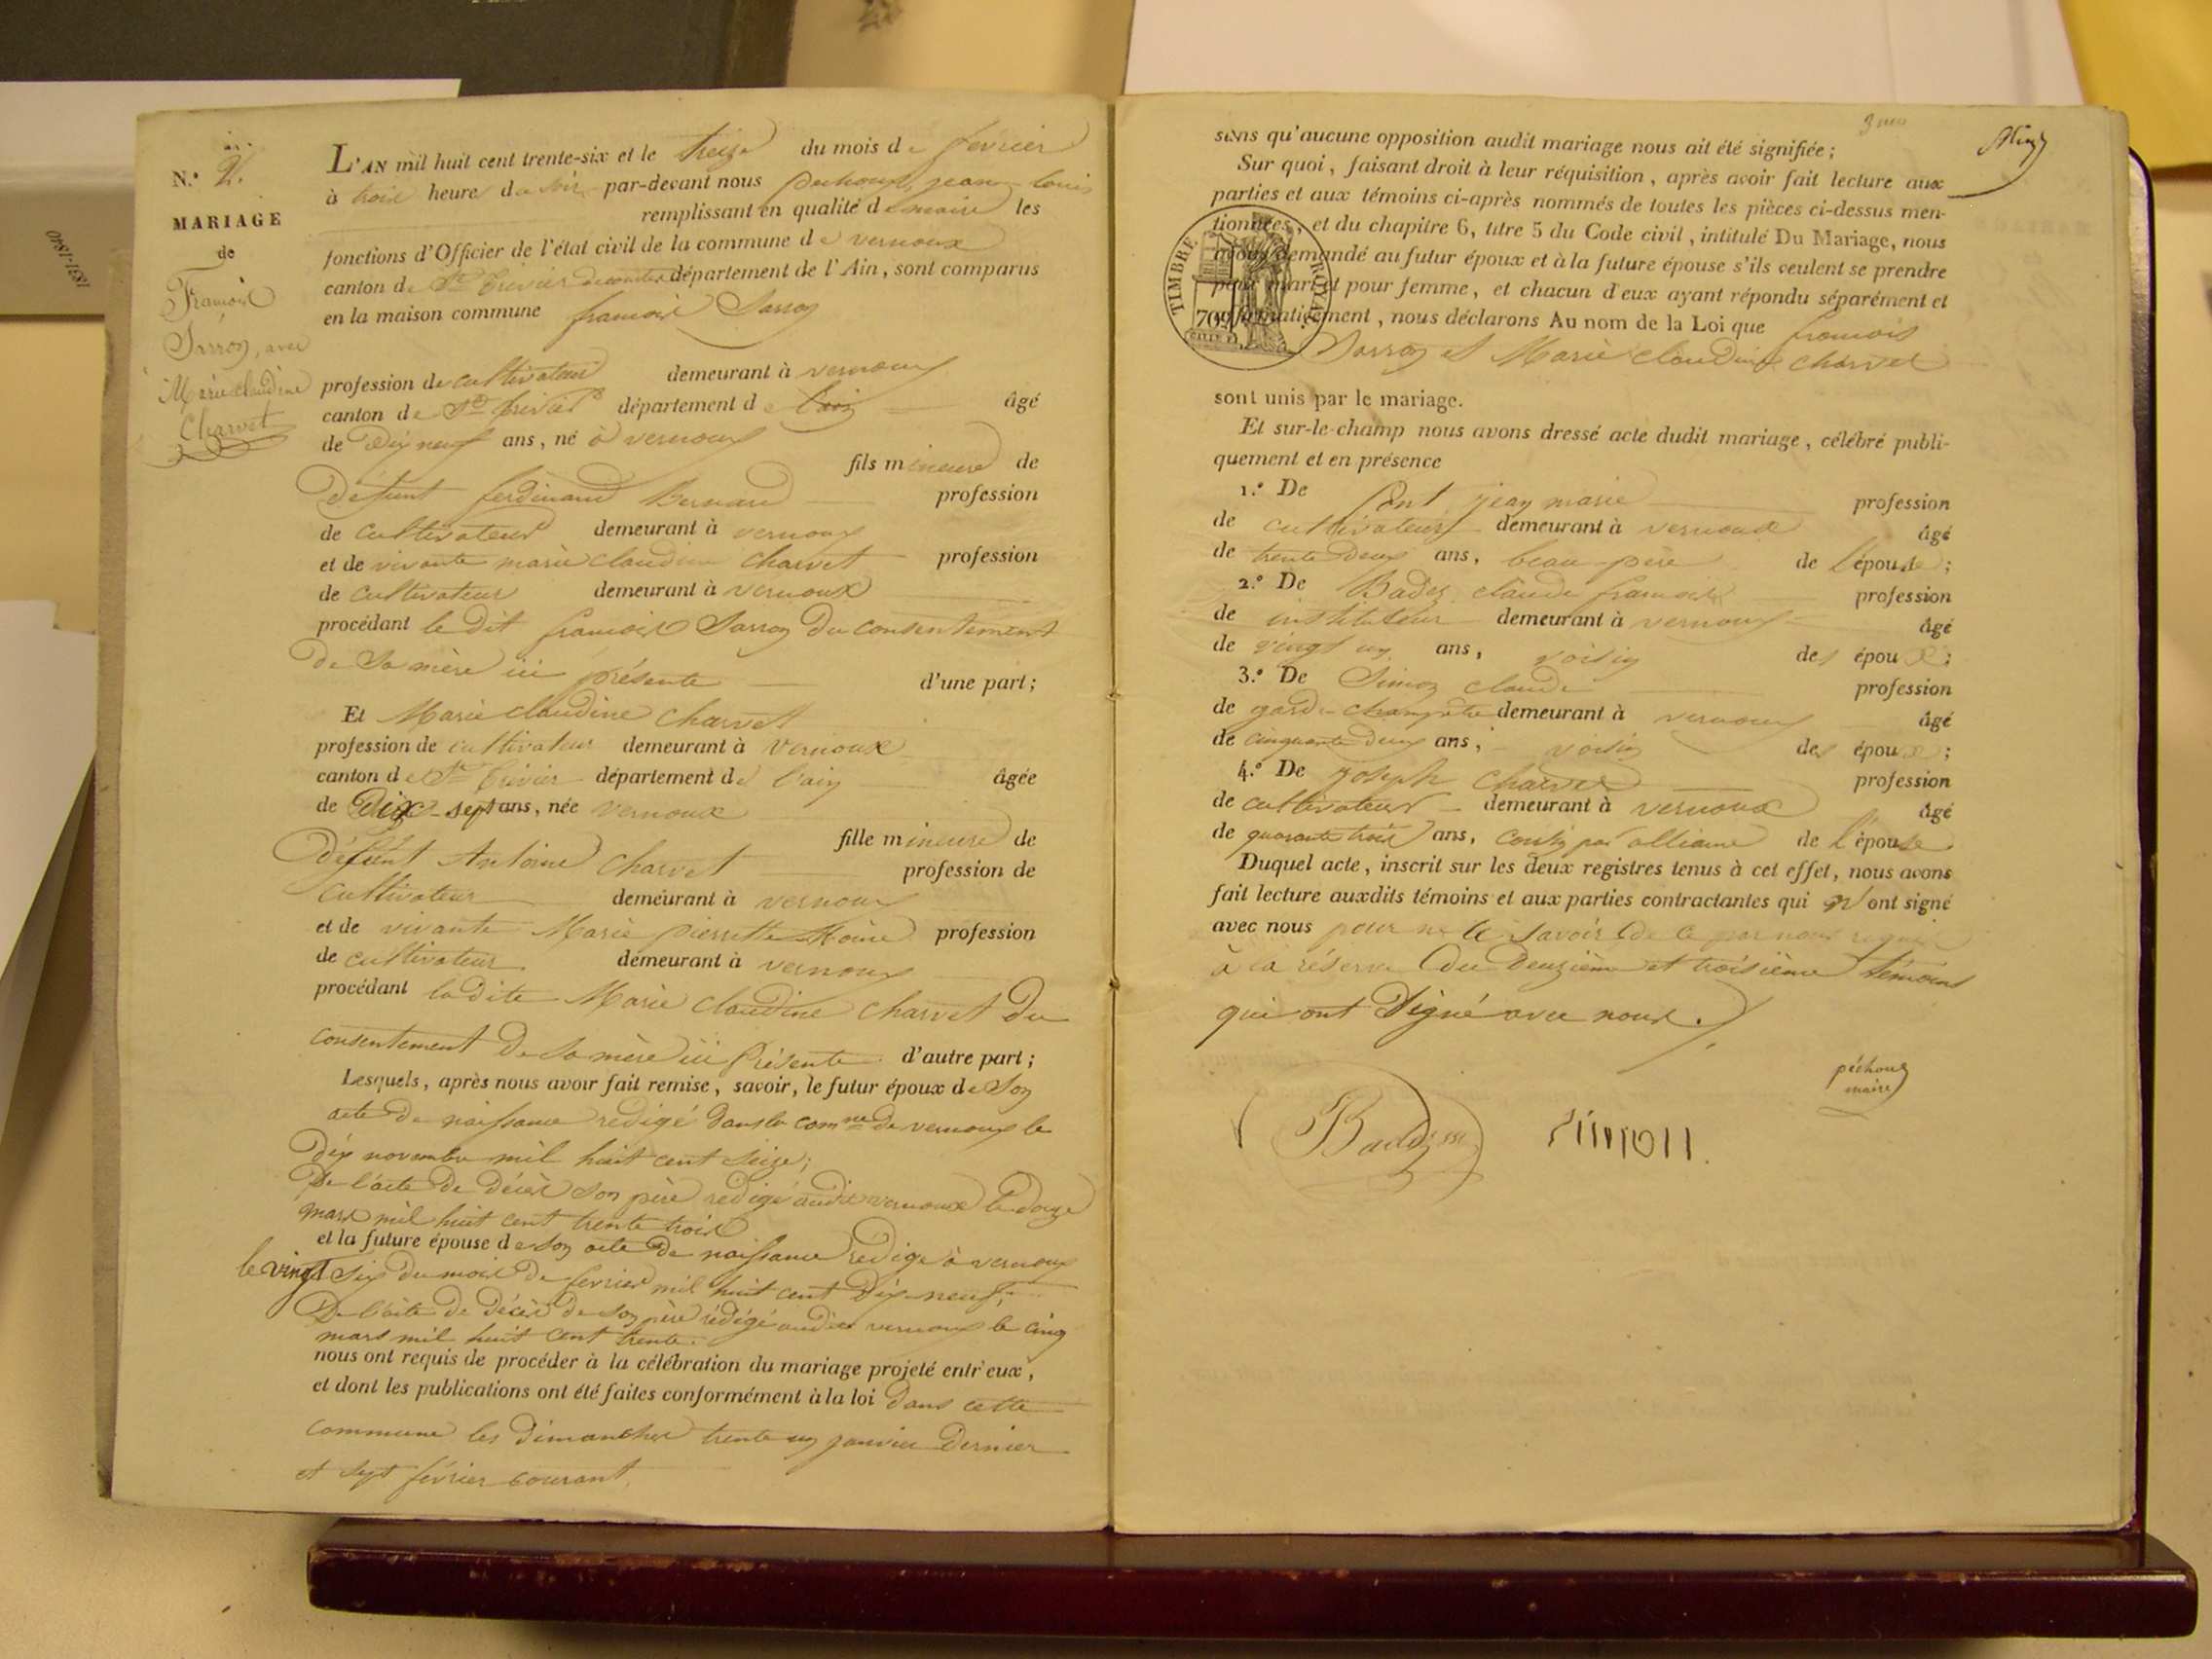 1831-1840
N.° 2.
MARIAGE
de
François
Sarron, avec
Marie claudine
Charvet
L'AN mil huit cent trente-six et le treize du mois de février
à trois heures du soir par-devant nous pechoux, jean-louis
remplissant en qualité de maire les
fonctions d'Officier de l'état civil de la commune de vernoux
canton de St Trivier de courtes département de l'Ain, sont comparus
en la maison commune françois Sarron
profession de cultivateur demeurant à vernoux
canton de St trivier département de l'ain âgé
de Dix neuf ans, né à vernoux
fils mineure de
Défunt ferdinand Bernard profession
de cultivateur demeurant à vernoux
et de vivante marie claudine charvet profession
de cultivateur demeurant à vernoux
procédant le dit françois Sarron du consentement
De Sa mère ici présente d'une part;
Et Marie claudine charvet
profession de cultivateur demeurant à vernoux
canton de St Trivier département de l'ain âgée
de Dix-sept ans, née vernoux
fille mineure de
Défunt Antoine charvet profession de
cultivateur demeurant à vernoux
et de vivante Marie pierrette Moine profession
de cultivateur demeurant à vernoux
procédant ladite Marie claudine charvet du
consentement De Sa mère ici Présente d'autre part;
Lesquels, après nous avoir fait remise, savoir, le futur époux de Son
acte De naissance redigé dans la comne De vernoux le
dix novembre mil huit cent seize;
De l'acte De Décès Son père redigé audit vernoux le douze
mars mil huit cent trente trois
et la future épouse de Son acte De naissance rédigé à vernoux
le vingt Six Du mois De fevrier mil huit cent Dix-neuf;
De l'acte De Décès De Son père rédigé audit vernoux le cinq
mars mil huit cent trente.
nous ont requis de procéder à la célébration du mariage projeté entr'eux,
et dont les publications ont été faites conformément à la loi Dans cette
Commune les Dimanches trente un janvier Dernier
et Sept février courant.
sans qu'aucune opposition audit mariage nous ait été signifiée;
Sur quoi, faisant droit à leur réquisition, après avoir fait lecture aux
parties et aux témoins ci-après nommés de toutes les pièces ci-dessus men-
tionnées, et du chapitre 6, titre 5 du Code civil, intitulé Du Mariage, nous
avons demandé au futur époux et à la future épouse s'ils veulent se prendre
pour mari et pour femme, et chacun d'eux ayant répondu séparément et
affirmativement, nous déclarons Au nom de la Loi que françois
Sarron et Marie claudine charvet
TIMBRE ROYAL
sont unis par le mariage.
Et sur-le-champ nous avons dressé acte dudit mariage, célébré publi-
quement et en présence
1.° De Pont jean marie profession
de cultivateur demeurant à vernoux âgé
de trente Deux ans, beau-père de l'épouse;
2.° De Badez claude françois profession
de instituteur demeurant à vernoux âgé
de vingt un ans, voisin des époux;
3.° De Simon claude profession
de garde-champêtre demeurant à vernoux âgé
de cinquante Deux ans, voisin des époux;
4.° De joseph charvet profession
de cultivateur demeurant à vernoux âgé
de quarante trois ans, cousin par alliance de l'épouse.
Duquel acte, inscrit sur les deux registres tenus à cet effet, nous avons
fait lecture auxdits témoins et aux parties contractantes qui n'ont signé
avec nous pour ne le Savoir de ce par nous requis
à la réserve Du Deuzième et troisième témoins
qui ont Signé avec nous.
péchoux
maire
simon